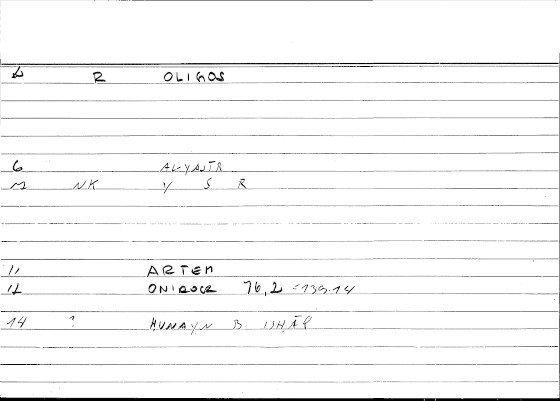 R OLIGOS
6 AL-YASTR
NK Y S R
11 ARTEM
12 ONIROCR 76,2 = 139.14
14 ? HUNAYN B. ISHĀQ